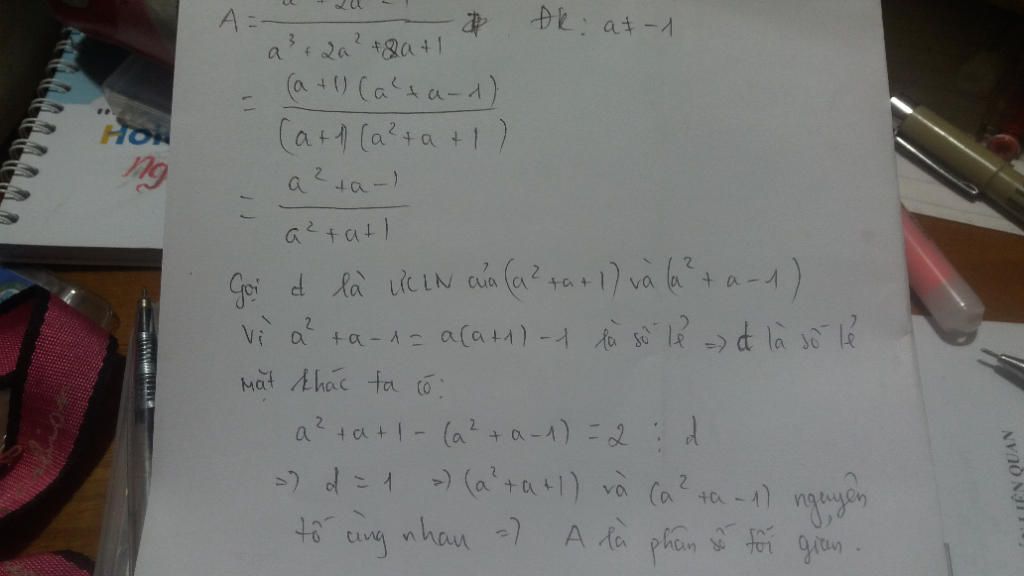 A = a³ + 2a² - 1 / a³ + 2a² + 2a + 1 ĐK: a ≠ -1
= (a+1)(a² + a - 1) / (a+1)(a² + a + 1)
= a² + a - 1 / a² + a + 1
Gọi d là ƯCLN của (a² + a + 1) và (a² + a - 1)
Vì a² + a - 1 = a(a+1) - 1 là số lẻ => d là số lẻ
Mặt khác ta có:
a² + a + 1 - (a² + a - 1) = 2 ⋮ d
=> d = 1 => (a² + a + 1) và (a² + a - 1) nguyên
tố cùng nhau => A là phân số tối giản.
LIÊN QUAN